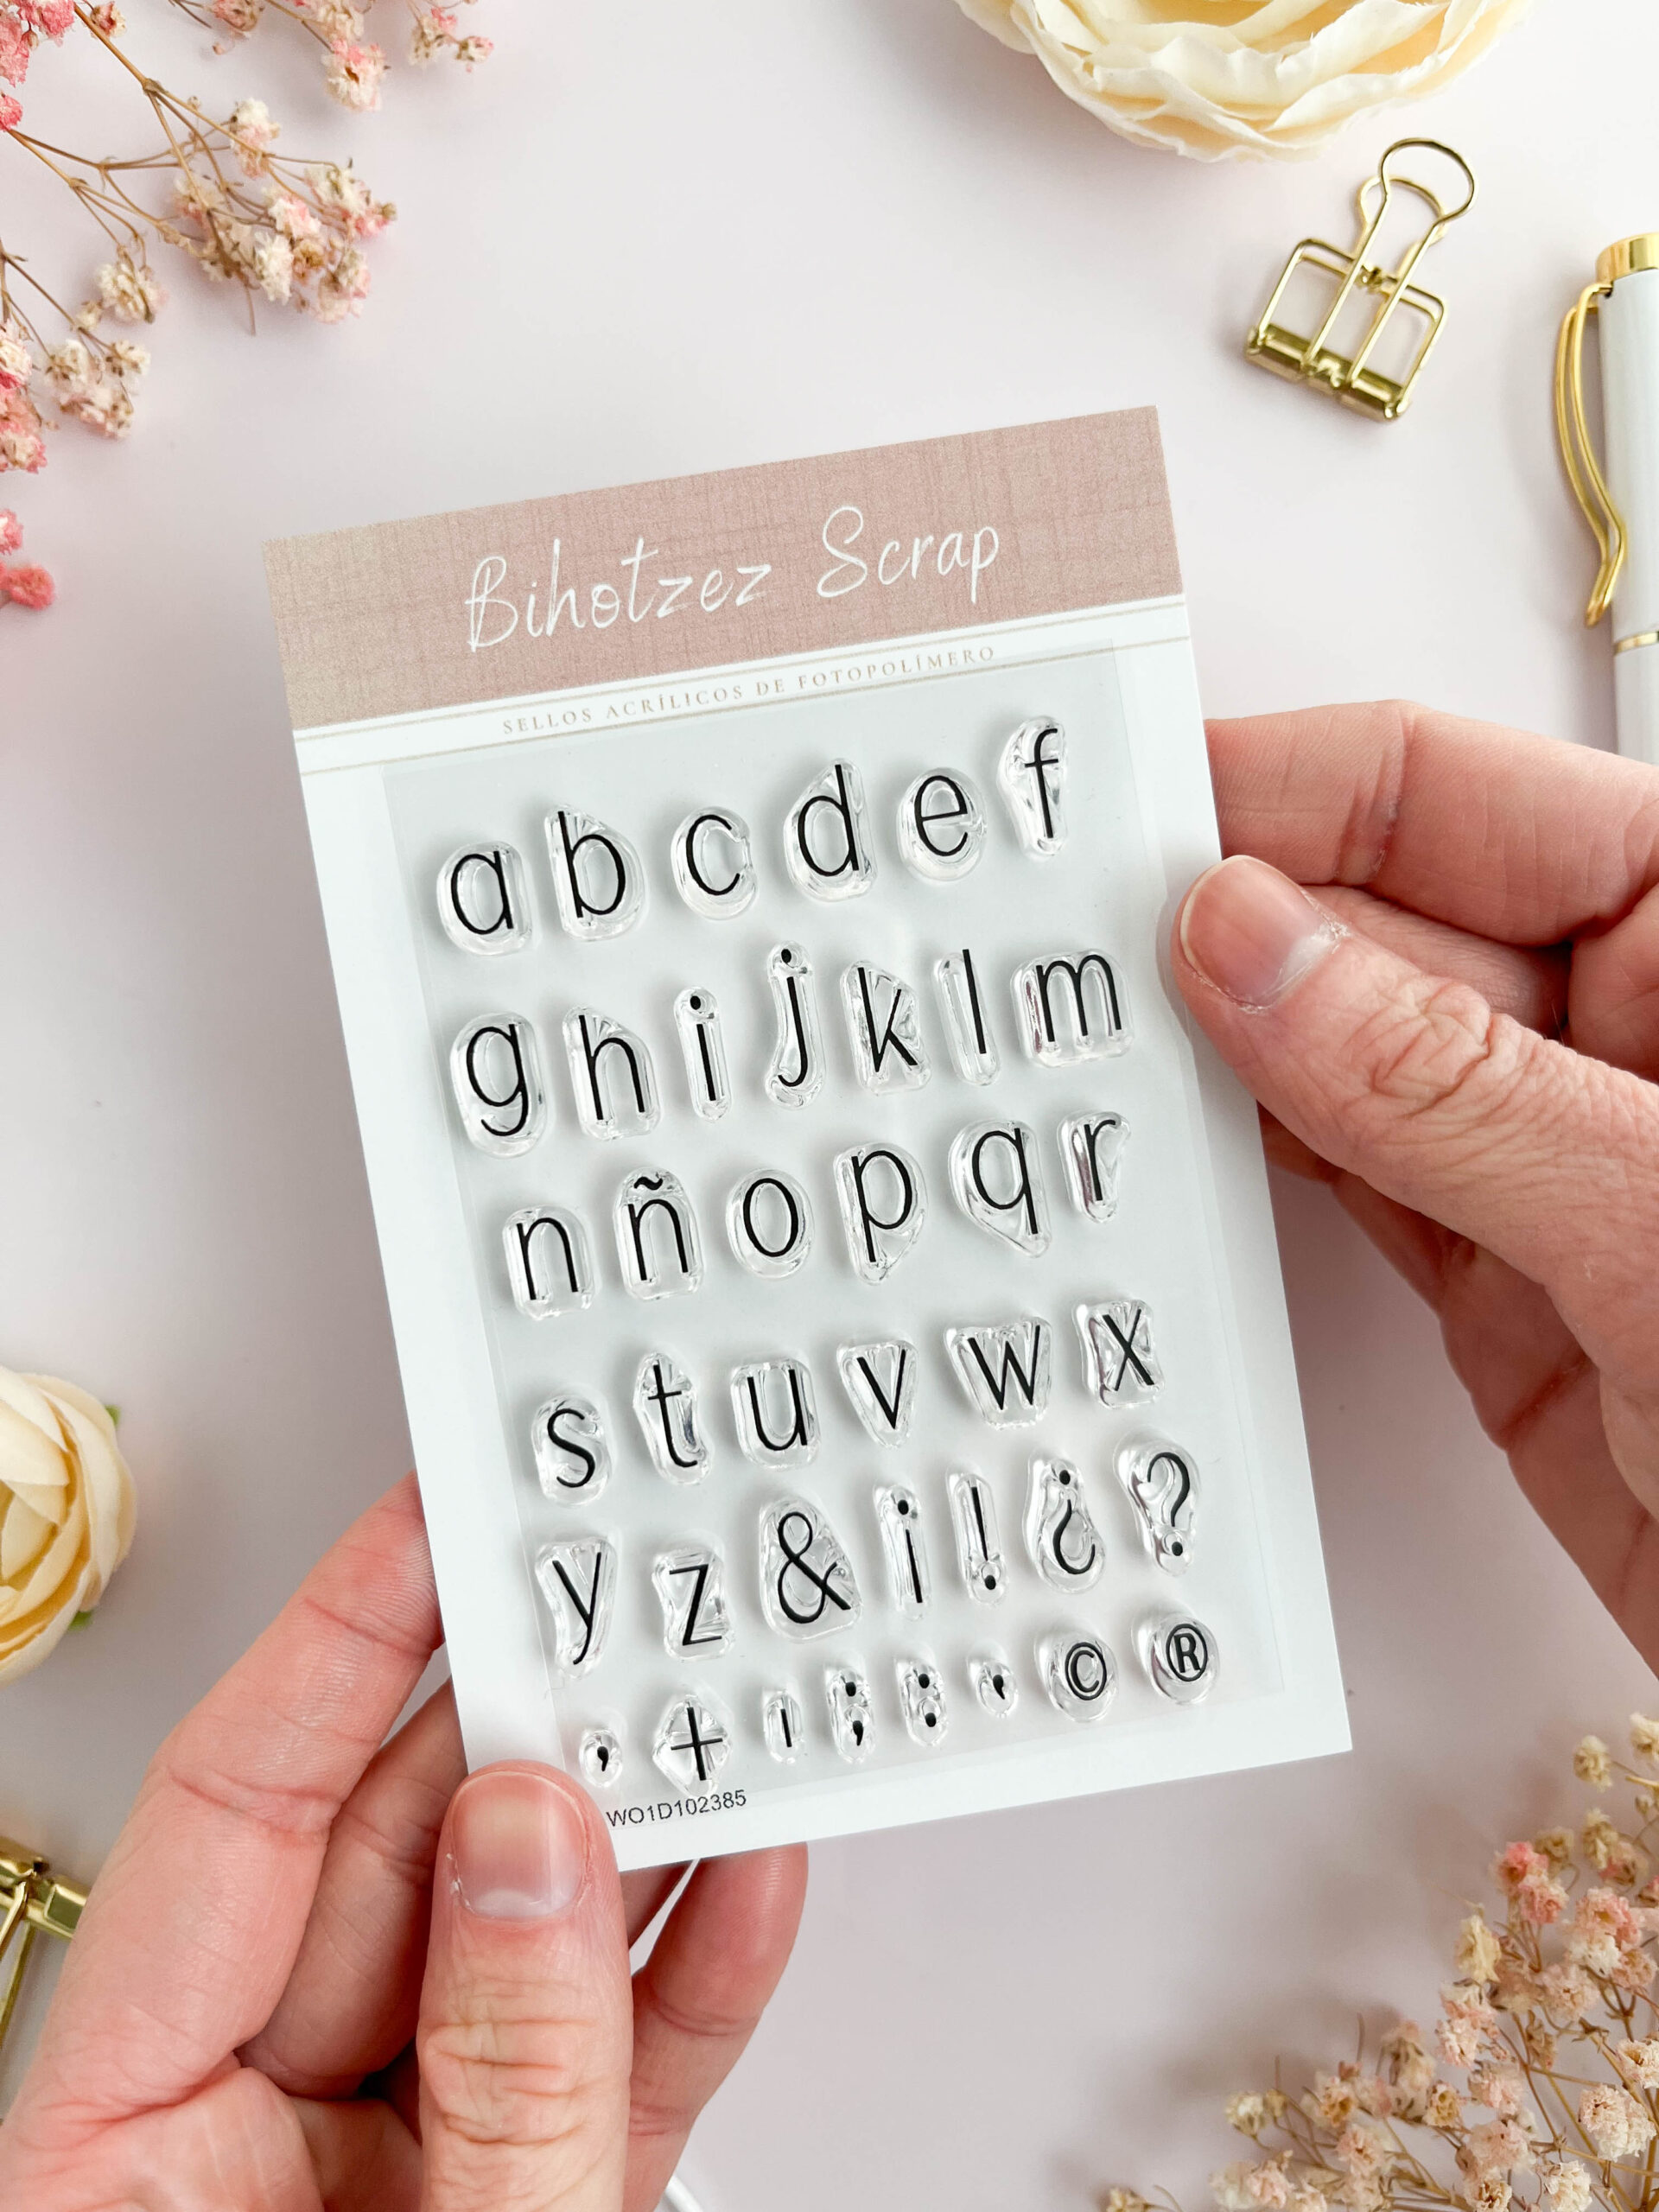 Bihotzez Scrap
SELLOS ACRÍLICOS DE FOTOPOLÍMERO
a b c d e f
g h i j k l m
n ñ o p q r
s t u v w x
y z & ¡ ! ¿ ?
, + - ; : , © ®
WO1D102385